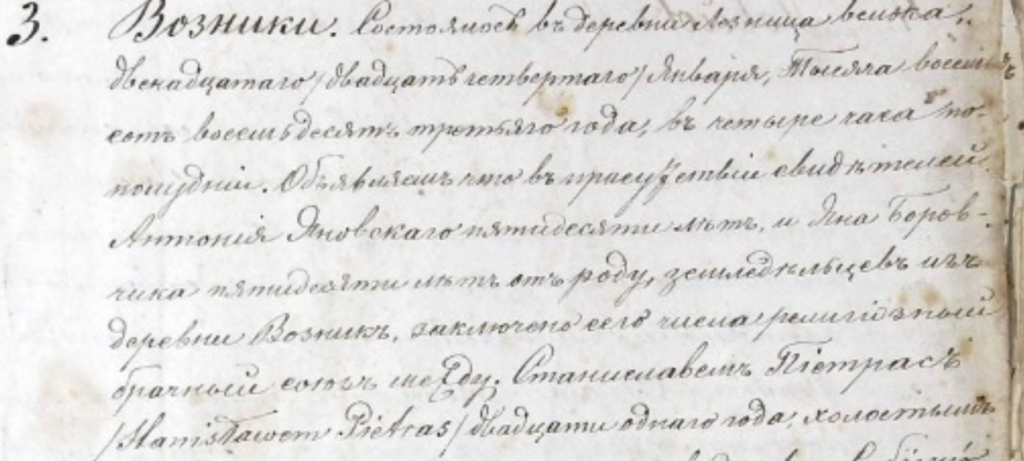 3. Возники. Состоялось въ деревни Лезница велька,
двенадцатаго /двадцать четвертаго/ Января, Тысяча восемь
сотъ восемьдесятъ третьяго года, въ четыре часа по-
полудни. Объявляемъ что въ присутствіи свидѣтелей
Антонія Яновскаго пятидесяти лѣтъ, и Яна Боров-
чика пятидесяти лѣтъ отъ роду, земледѣльцевъ изъ
деревни Возникъ, заключено сего числа религіозный
брачный союзъ между, Станиславемъ Піетрасъ
/Stanisławom Pietras/ двадцати однаго года, холостымъ